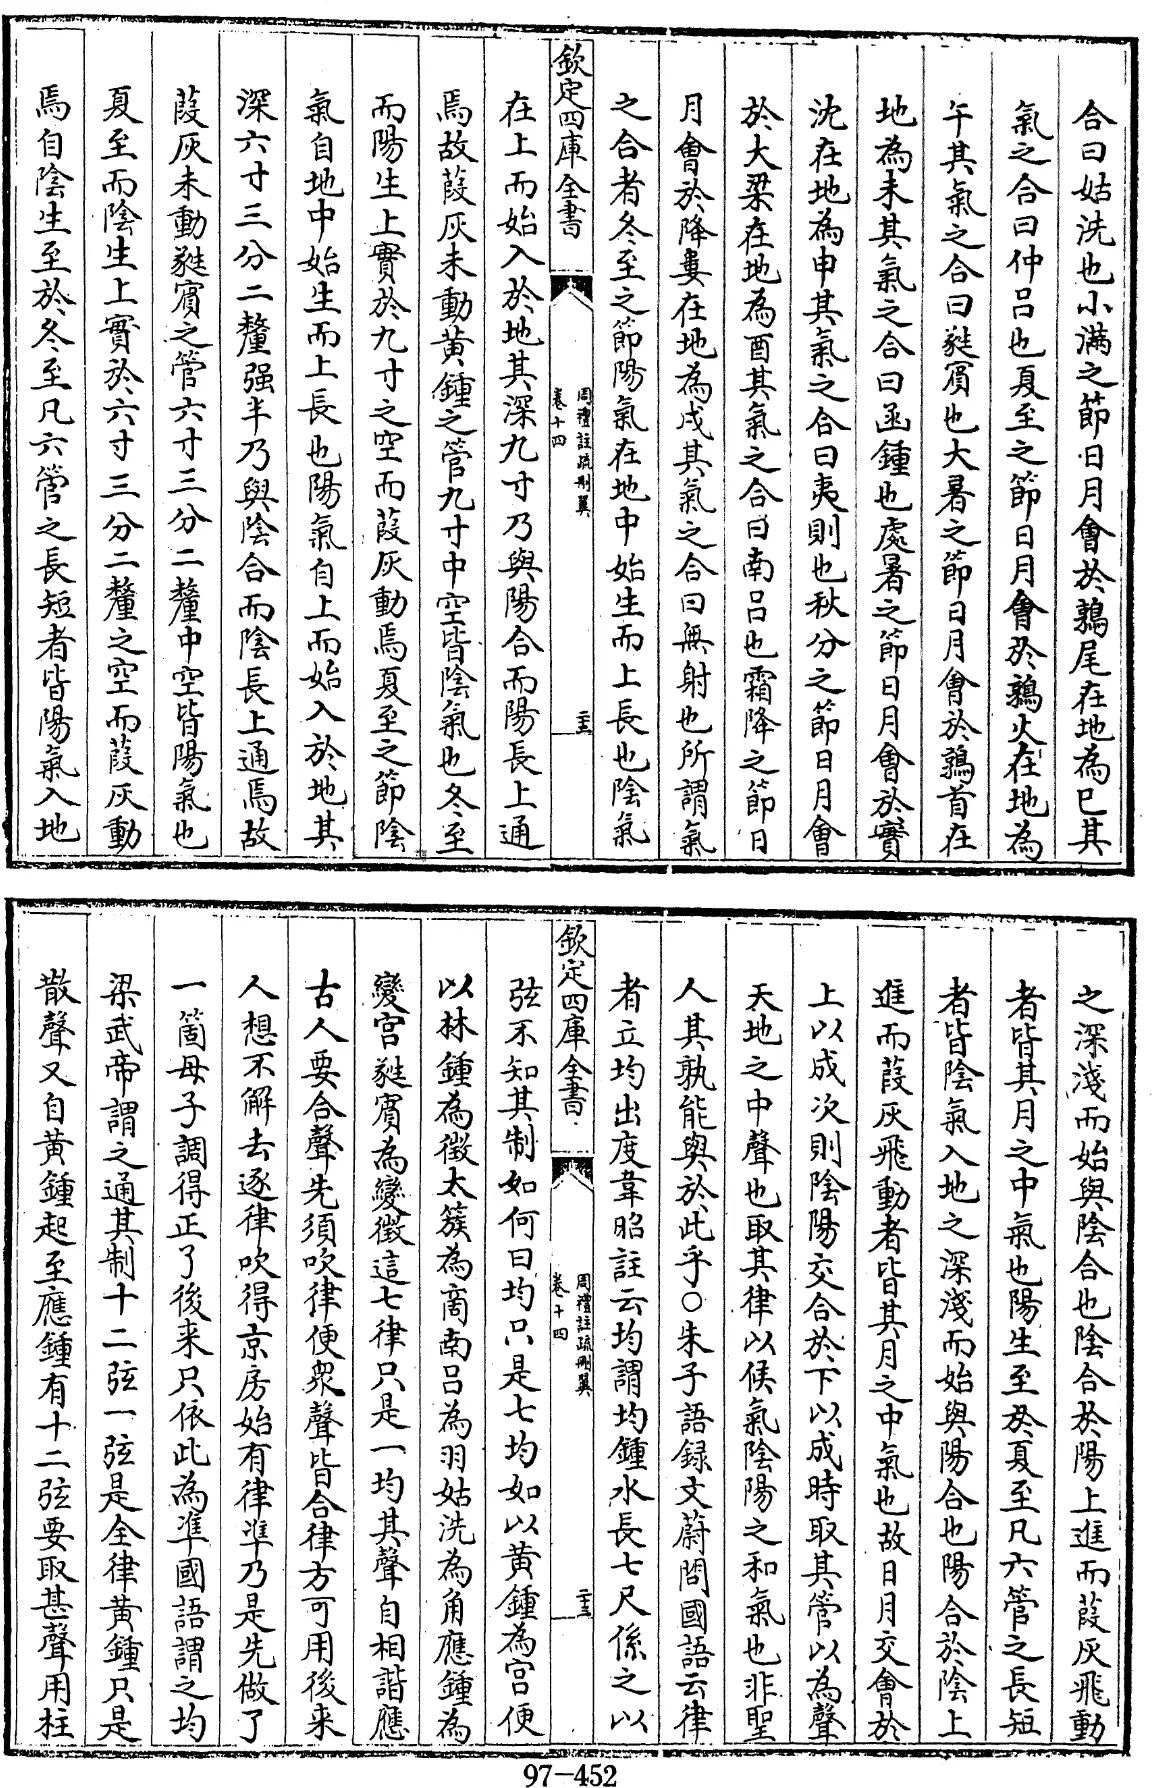 合曰姑洗也小滿之節日月會於鶉尾在地為巳其
氣之合曰仲吕也夏至之節日月會於鶉火在地為
午其氣之合曰蕤賓也大暑之節日月會於鶉首在
地為未其氣之合曰函鍾也處暑之節日月會於實
沈在地為申其氣之合曰夷則也秋分之節日月會
於大梁在地為酉其氣之合曰南吕也霜降之節日
月會於降婁在地為戌其氣之合曰無射也所謂氣
之合者冬至之節陽氣在地中始生而上長也陰氣
欽定四庫全書
周禮註疏刪翼
卷十四
二十三
在上而始入於地其深九寸乃與陽合而陽長上通
焉故葭灰未動黃鍾之管九寸中空皆陰氣也冬至
而陽生上實於九寸之空而葭灰動焉夏至之節陰
氣自地中始生而上長也陽氣自上而始入於地其
深六寸三分二釐强半乃與陰合而陰長上通焉故
葭灰未動蕤賓之管六寸三分二釐中空皆陽氣也
夏至而陰生上實於六寸三分二釐之空而葭灰動
焉自陰生至於冬至凡六管之長短者皆陽氣入地
之深淺而始與陰合也陰合於陽上進而葭灰飛動
者皆其月之中氣也陽生至於夏至凡六管之長短
者皆陰氣入地之深淺而始與陽合也陽合於陰上
進而葭灰飛動者皆其月之中氣也故日月交會於
上以成次則陰陽交合於下以成時取其管以為聲
天地之中聲也取其律以候氣陰陽之和氣也非聖
人其孰能與於此乎○朱子語録文蔚問國語云律
者立均出度韋昭註云均謂均鍾木長七尺係之以
欽定四庫全書
周禮註疏刪翼
卷十四
二十三
弦不知其制如何曰均只是七均如以黃鍾為宫便
以林鍾為徵太簇為商南吕為羽姑洗為角應鍾為
變宫蕤賓為變徵這七律只是一均其聲自相諧應
古人要合聲先須吹律便衆聲皆合律方可用後来
人想不解去逐律吹得京房始有律準乃是先做了
一箇母子調得正了後来只依此為準國語謂之均
梁武帝謂之通其制十二弦一弦是全律黃鍾只是
散聲又自黃鍾起至應鍾有十二弦要取甚聲用柱
97-452